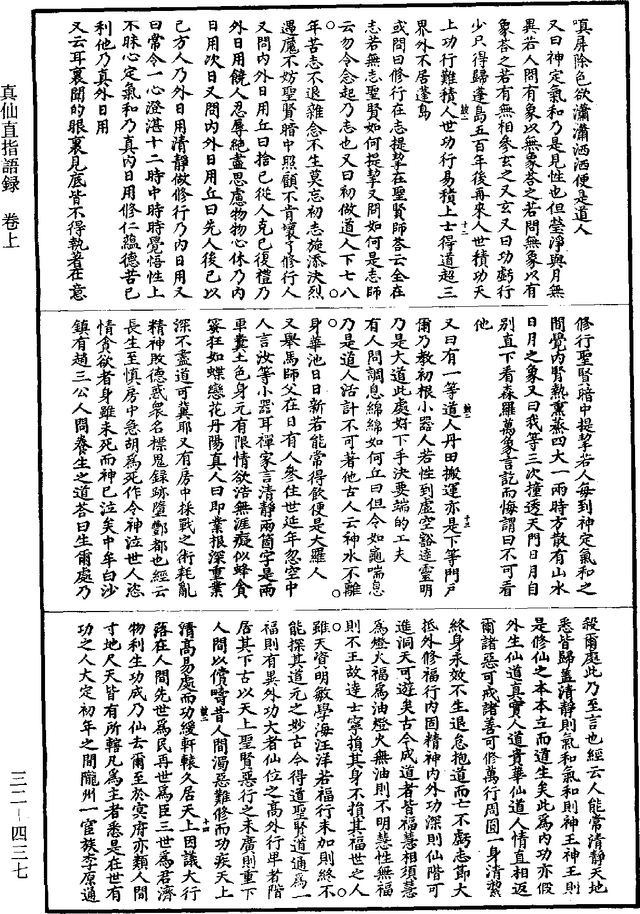 嗔屏除色欲瀟瀟洒洒便是道人
又曰神定氣和乃是見性也但瑩淨與月無
異若人問有象以無象荅之若問無象以有
象荅之若有無相參玄之又玄又曰功虧行
少只得歸蓬島五百年後再來人世積功天
上功行難積人世功行易積上士得道超三
界外不居蓬島
或問曰修行在志提挈在聖賢師荅云全在
志若無志聖賢如何提挈又問如何是志師
云勿令念起乃志也又曰初做道人下七八
年苦志不退雜念不生莫忘初志施添決烈
遇魔不妨聖賢暗中照顧不肯壞了修行人
又問内外日用丘曰捨己從人克己復禮乃
外日用饒人忍辱絶盡思慮物物心休乃内
日用次日又問内外日用丘曰先人後己以
己方人乃外日用清靜做修行乃内日用又
曰常令一心澄湛十二時中時時覺悟性上
不昧心定氣和乃真内日用修仁蘊德苦己
利他乃真外日用
又云耳裏聞的眼裏見底皆不得執著在意
修行聖賢暗中提挈若人每到神定氣和之
間覺内腎熱熏蒸四大一兩時方散有山水
日月之象又曰我等三次撞透天門日月自
別直下看森羅萬象言訖而悔謂曰不可看
他
又曰有一等道人丹田搬運亦是下等門戶
爾乃教初根小器人若性到虛空豁達靈明
乃是大道此處好下手決要端的工夫
有人問調息綿綿如何丘曰但今如龜喘息
乃是道人活計不可著他古人云神水不離
身華池日日新若能常得飲便是大羅人
又舉馬師父在日有人參住世延年忽空中
人言汝等小器耳禪家言清靜兩箇字是兩
車糞土色身元有限情欲浩無涯癡似蜂貪
蜜狂如蝶戀花丹陽真人曰即業根深重業
深不盡道可冀耶又有房中採戰之術耗亂
精神敗德惑衆名標鬼録跡墮酆都也經云
長生至慎房中急胡爲死作令神泣世人恣
情貪欲者身雖未死而神已泣矣中牟白沙
鎮有趙三公人問養生之道荅曰生爾處乃
殺爾處此乃至言也經云人能常清靜天地
悉皆歸蓋清靜則氣和氣和則神王神王則
是修仙之本本立而道生矣此爲内功亦假
外生仙道真實人道貴華仙道人情直相返
爾諸惡可戒諸善可修萬行周圓一身清絜
終身永效不生退怠抱道而亡不虧志節大
抵外修福行内固精神内外功深則仙階可
進洞天可遊矣古今成道者皆福慧相須慧
爲燈火福爲油燈火無油則不明慧性無福
則不王故達士寧損其身不損其福世之人
雖天資明敏學海汪洋若福行未加則終不
能探其道元之妙古今得道聖賢道通爲一
福則有異外功大者仙位之高外行卑者階
居其下古以天上聖賢惡行之未廣則重下
人間以償疇昔人間濁惡難修而功疾天上
清高易處而功緩軒轅久居天上因議大行
落在人間先世爲民再世爲臣三世爲君濟
物利生功成乃仙去爾至於冥府亦類人間
寸地尺天皆有所轄凡爲主者悉是在世有
功之人大定初年之間隴州一宦族李原通
真仙直指語録　卷上
三二－四三七